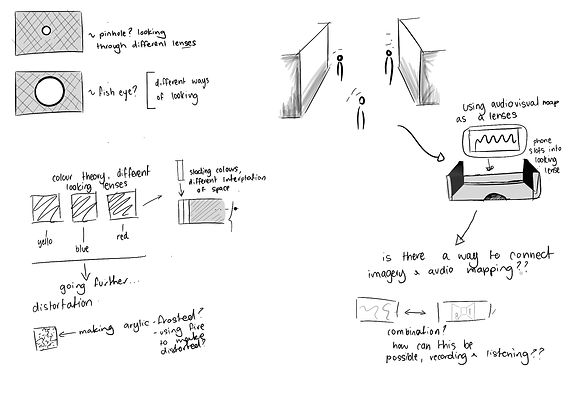 ~ pinhole? looking
through different lenses
~ fish eye?
different ways
of looking
colour theory, different
looking lenses
yello
blue
red
shading colours,
different interptation
of space
going further...
distortation
making arylic - frosted?
- using fire
to make
distorted?
using audiovisual maps
as a lenses
phone
slots into
looking
lense
is there a way to connect
imagery & audio mapping??
combination?
how can this be
possible, recording & listening??